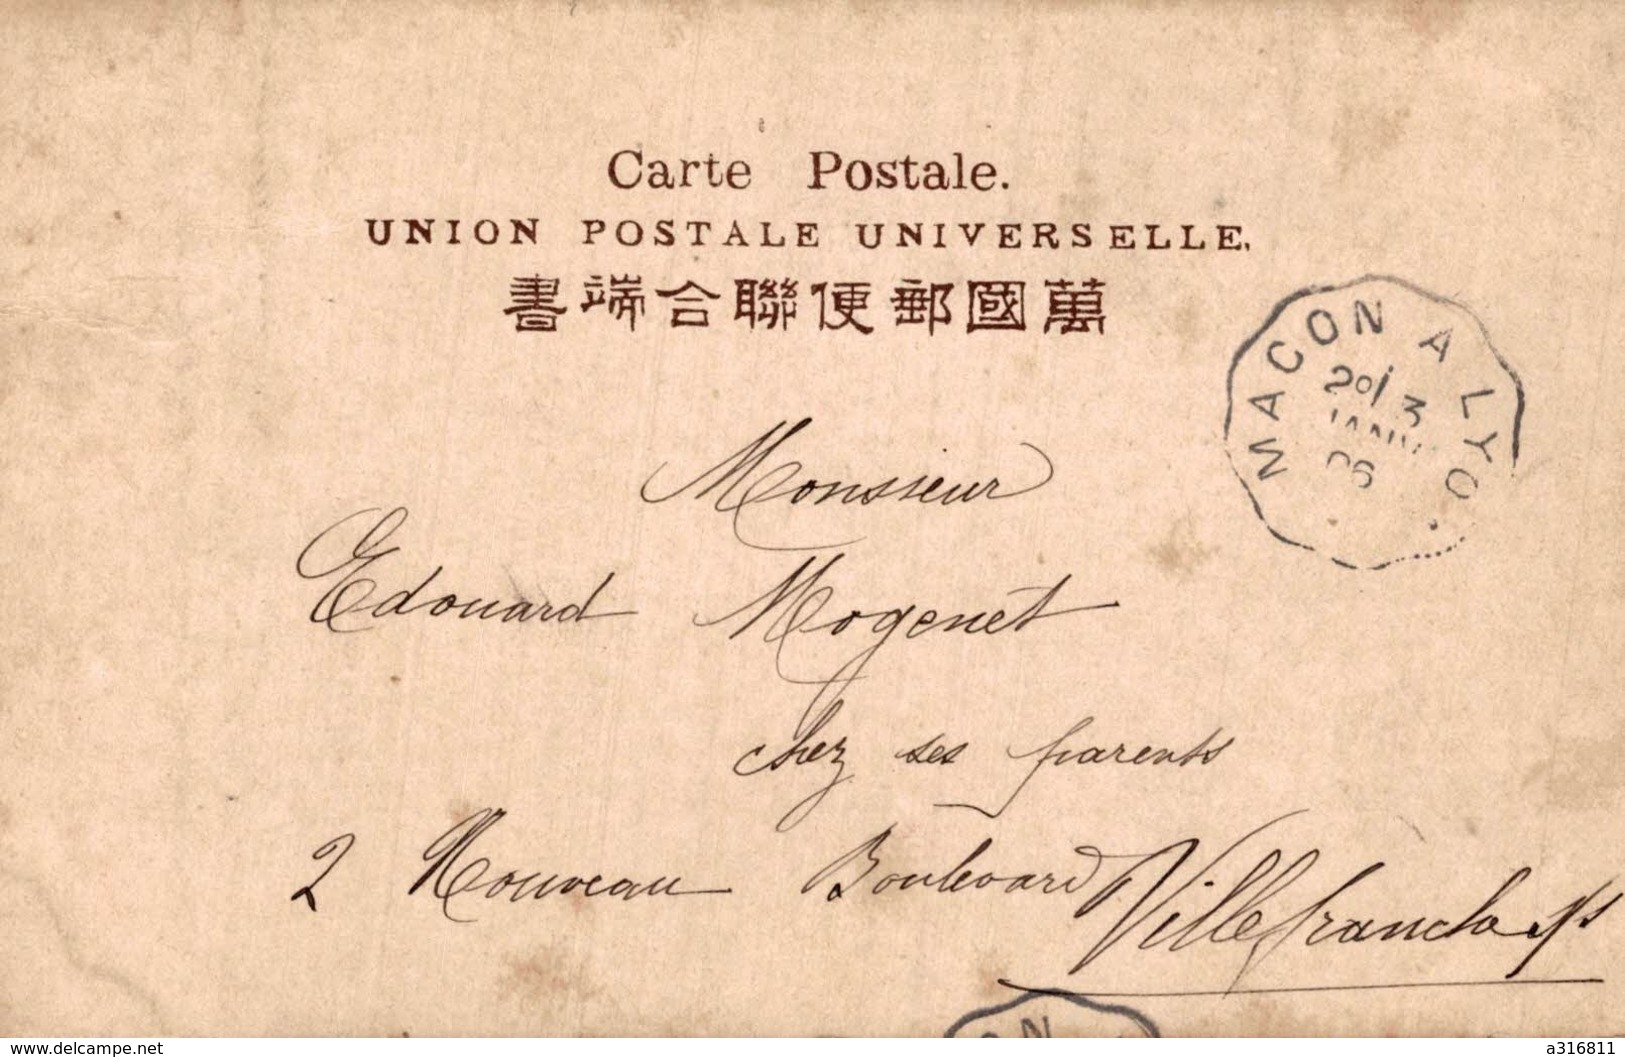 Carte Postale.
UNION POSTALE UNIVERSELLE.
書端合聯便郵國萬
MACON A LYO
3
06
Monsieur
Edouard Mogenet
chez ses parents
2 Nouveau Boulevard
Villefranche s/s
ON
delcampe.net
a316811